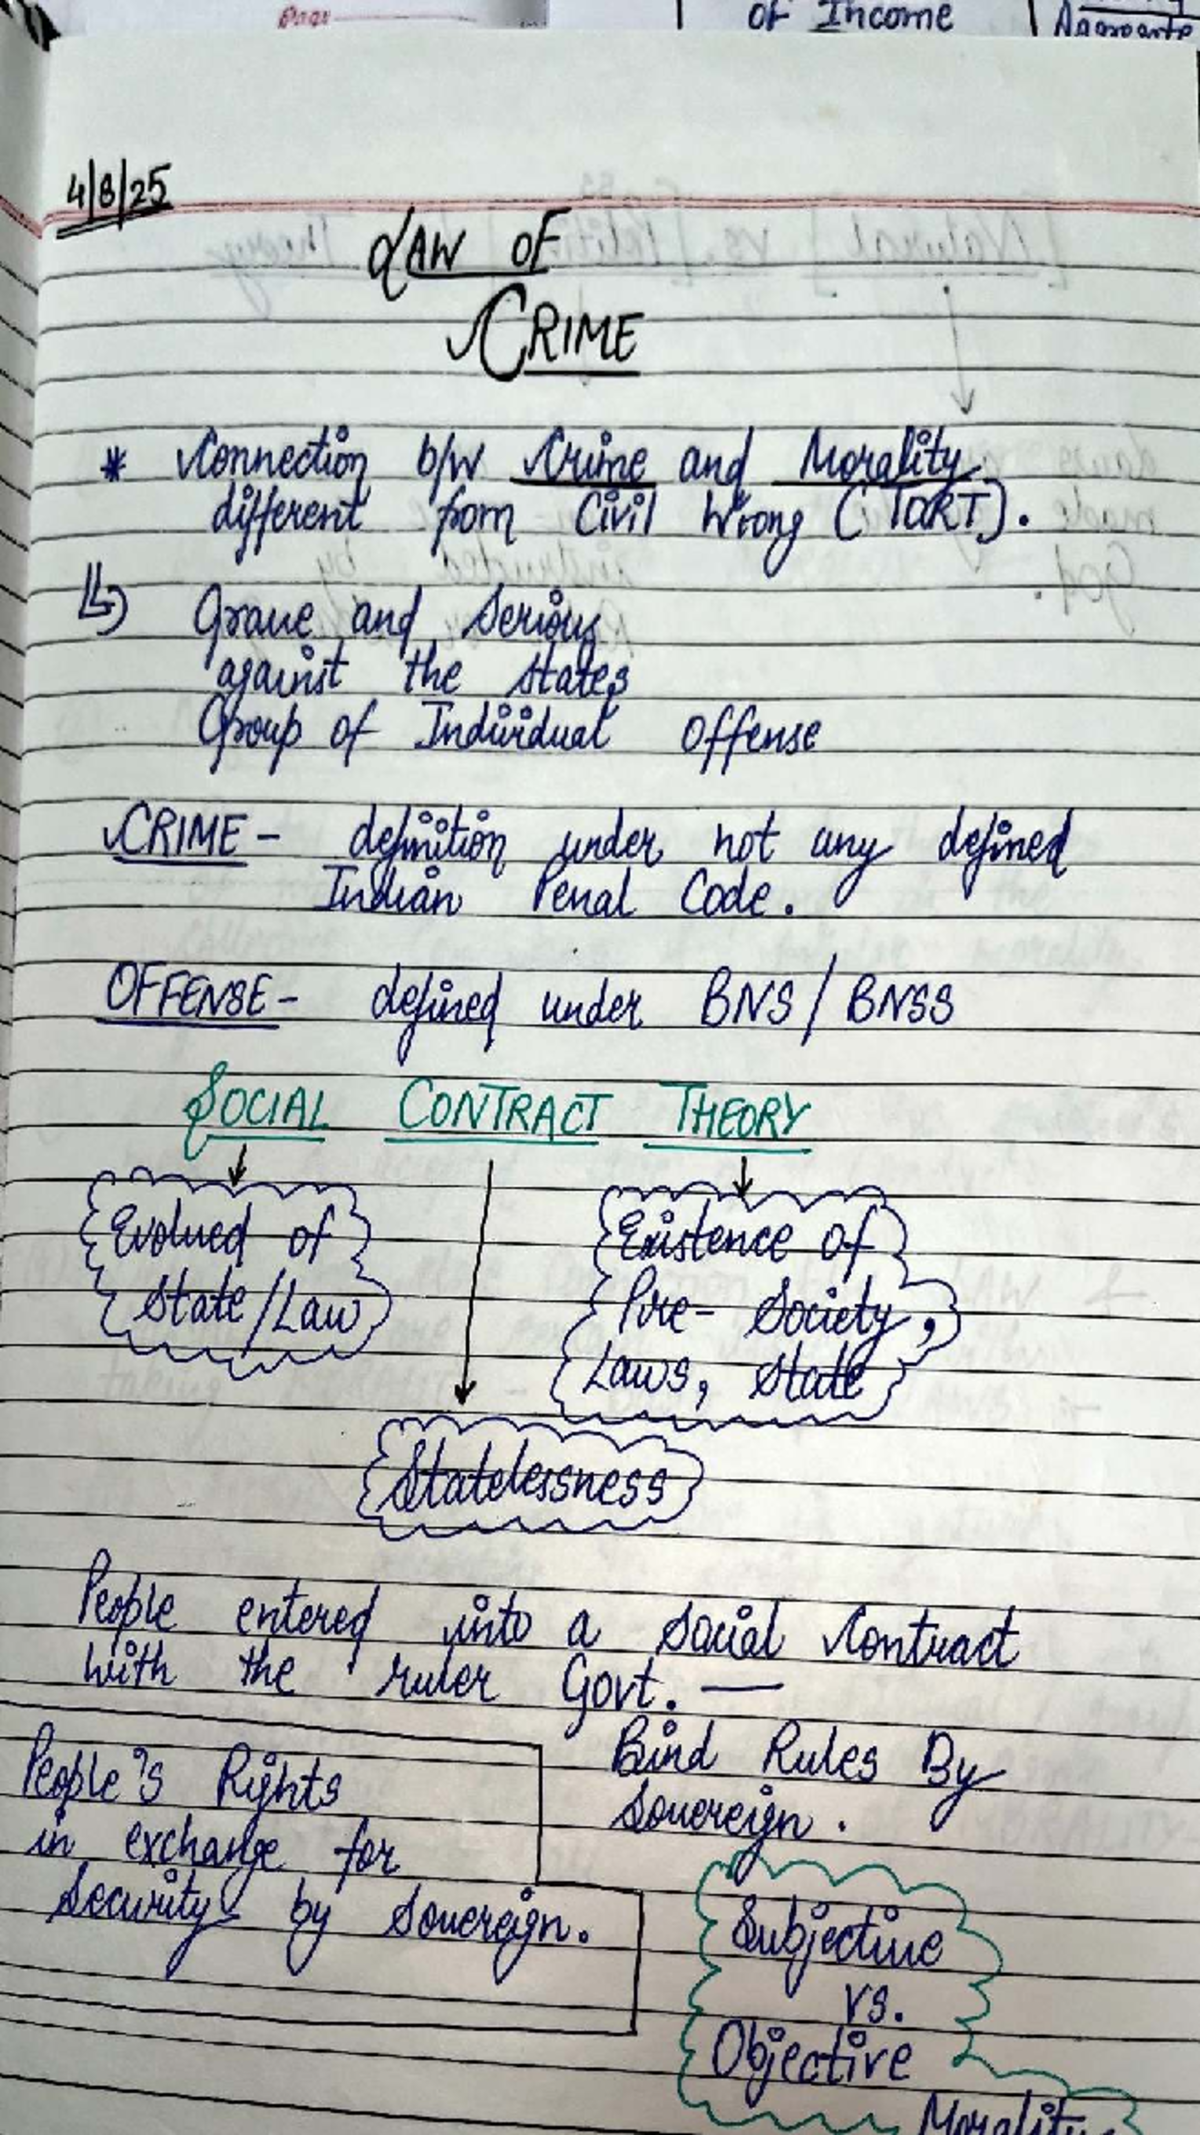 Page
of Income
Aggregate
4/8/25
LAW OF
CRIME
* Connection b/w Crime and Morality
different from Civil Wrong (TORT).
Grave and Serious
against the states
Group of Individual Offense
CRIME - definition under not any defined
Indian Penal Code.
OFFENSE - defined under BNS / BNSS
SOCIAL CONTRACT THEORY
Evolved of
State/Law
Existence of
Pre- Society,
Laws, State
Statelessness
People entered into a Social Contract
with the ruler Govt. —
Bind Rules By
Sovereign.
People's Rights
in exchange for
Security by Sovereign.
Subjective
vs.
Objective
Morality